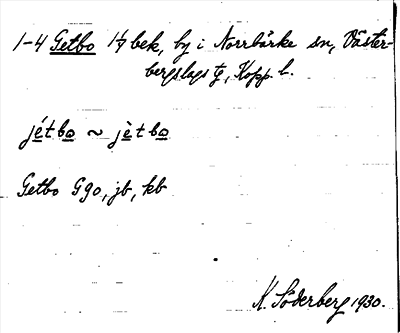 1-4 Getbo 1/7 bek, by i Norrbärke sn, Väster-
bergslags tg, Kopp. l.
jétbo ~ jètbo
Getbo Ggo, jb, kb
K. Söderberg 1930.